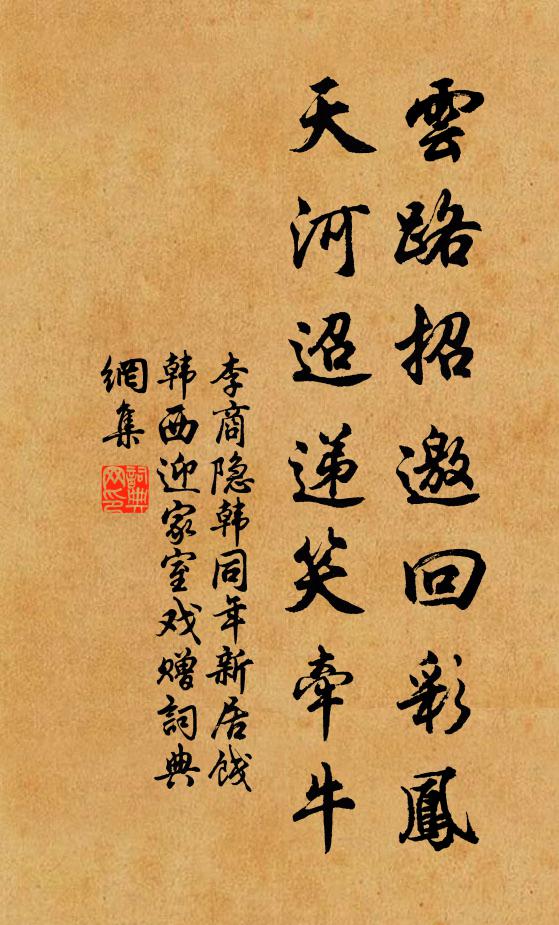 雲路招邀回彩鳳
天河迢递笑牽牛
李商隐韩同年新居饯
韩西迎家室戏赠詞典
網集
詞典
网印